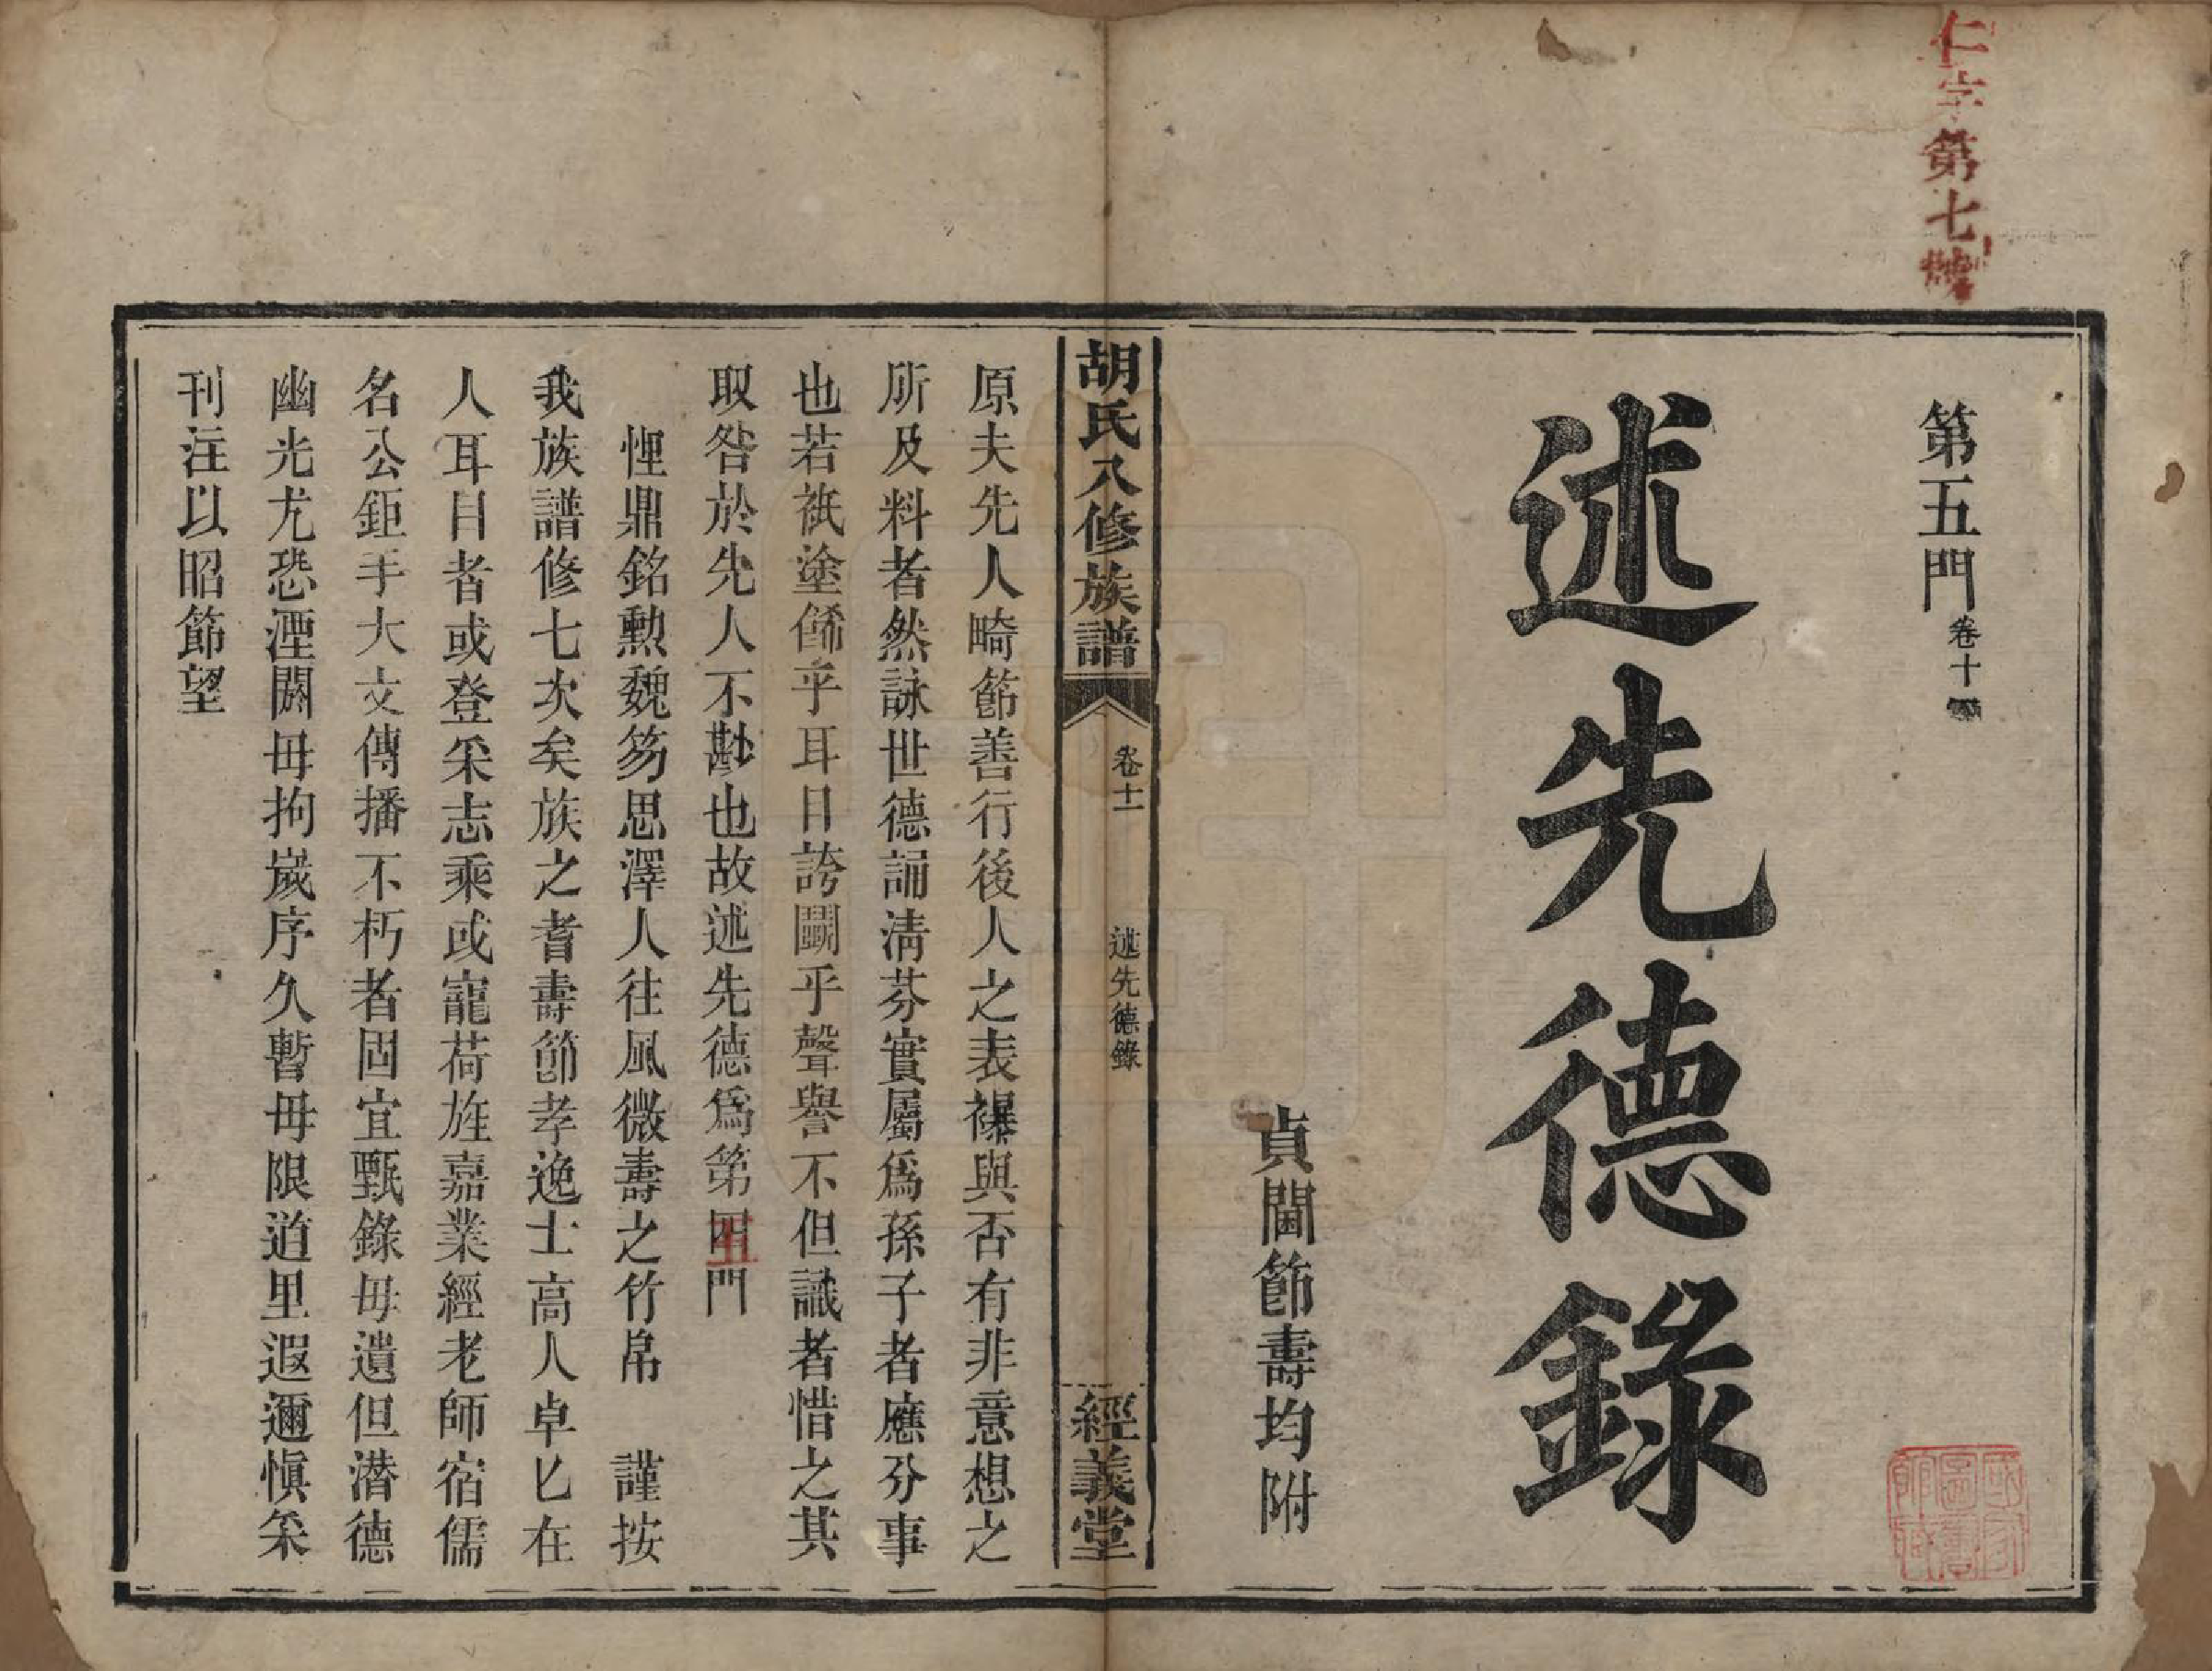 仁字第七
第五門 卷十
述先德錄
貞閫節壽均附
胡氏八修族譜 卷十一 述先德錄 經義堂
原夫先人畸節善行後人之表襮與否有非意想之
所及料者然詠世德誦淸芬實屬爲孫子者應分事
也若祇塗飾乎耳目誇鬭乎聲譽不但識者惜之其
取咎於先人不尠也故述先德爲第五門
悝鼎銘勲魏笏思澤人往風微壽之竹帛 謹按
我族譜修七次矣族之耆壽節孝逸士高人卓匕在
人耳目者或登采志乘或寵荷旌嘉業經老師宿儒
名公鉅手大文傳播不朽者固宜甄錄毋遺但潛德
幽光尤恐湮閼毋拘嵗序久暫毋限道里遐邇愼采
刊注以昭節望